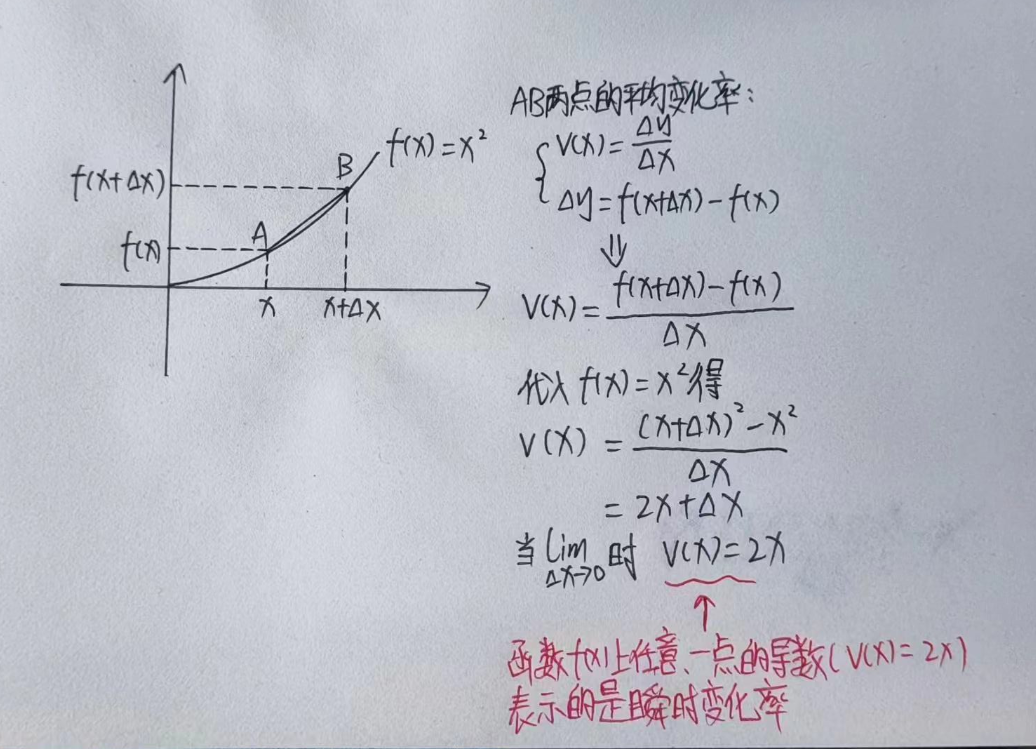 f(x)=x²
B
f(x+Δx)
A
f(x)
x
x+Δx
AB两点的平均变化率:
V(x)=Δy/Δx
Δy=f(x+Δx)-f(x)
⇓
V(x)=f(x+Δx)-f(x)/Δx
代入f(x)=x²得
V(x)=(x+Δx)²-x²/Δx
=2x+Δx
当lim Δx→0时 V(x)=2x
↑
函数f(x)上任意一点的导数(V(x)=2x)
表示的是瞬时变化率